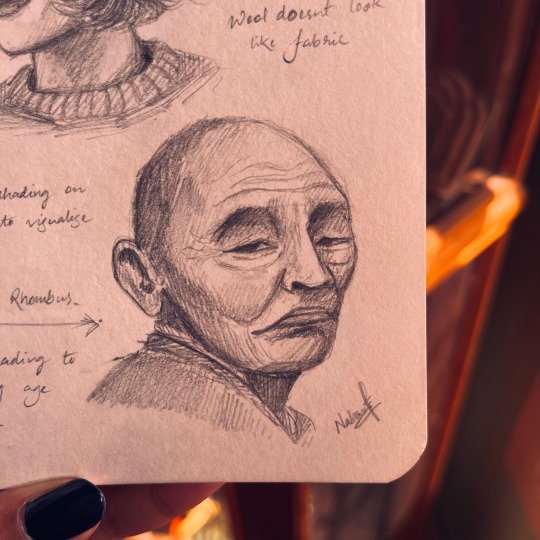 Wool doesnt look
like fabric
shading on
to visualize
Rhombus.
to
age